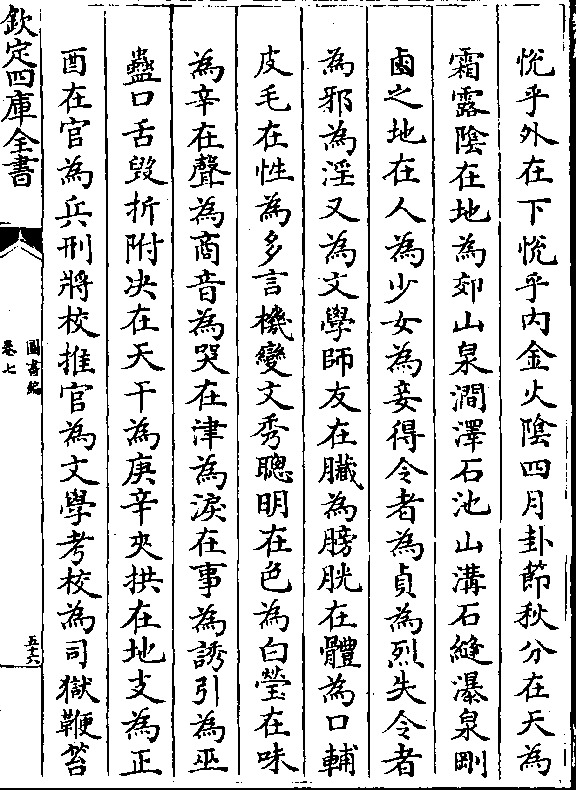 悅乎外在下悅乎内金火隂四月卦節秋分在天為
霜露隂在地為郊山泉澗澤石池山溝石縫瀑泉剛
鹵之地在人為少女為妾得令者為貞為烈失令者
為邪為淫又為文學師友在臟為膀胱在體為口輔
皮毛在性為多言機變文秀聰明在色為白瑩在味
為辛在聲為商音為哭在津為淚在事為誘引為巫
蠱口舌毀折附决在天干為庚辛夾拱在地支為正
酉在官為兵刑將校推官為文學考校為司獄鞭笞
欽定四庫全書
圖書編
卷七
五十六